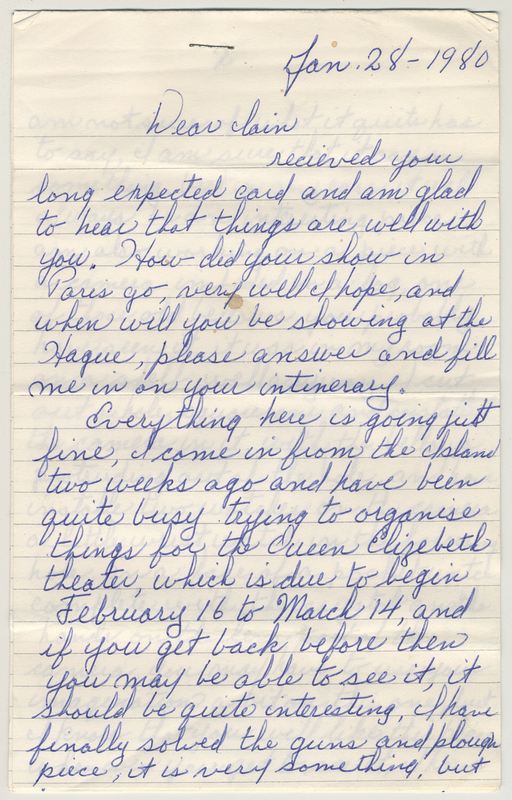 Jan. 28 - 1980
Dear clain
recieved your
long expected card and am glad
to hear that things are well with
you. How did your show in
Paris go, very well I hope, and
when will you be showing at the
Hague, please answer and fill
me in on your intinerary.
Everything here is going just
fine, I come in from the Island
two weeks ago and have been
quite busy trying to organise
things for the Queen Elizebeth
theater, which is due to begin
February 16 to March 14, and
if you get back before then
you may be able to see it, it
should be quite interesting, I have
finally solved the guns and plough
piece, it is very something, but